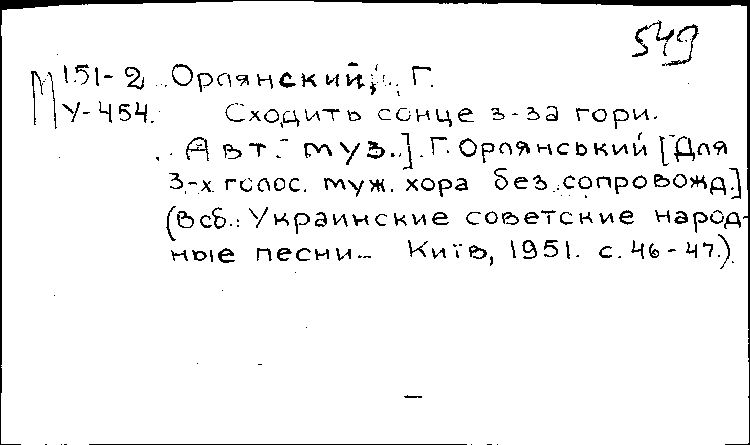 549
М 151-2 Орлянский, Г.
У-454. Сходить сонце з-за гори.
[Авт. муз.]. Г. Орлянський [Для
3-х голос. муж. хора без сопровожд.]
(в сб.: Украинские советские народ-
ные песни. Київ, 1951. с. 46-47.)